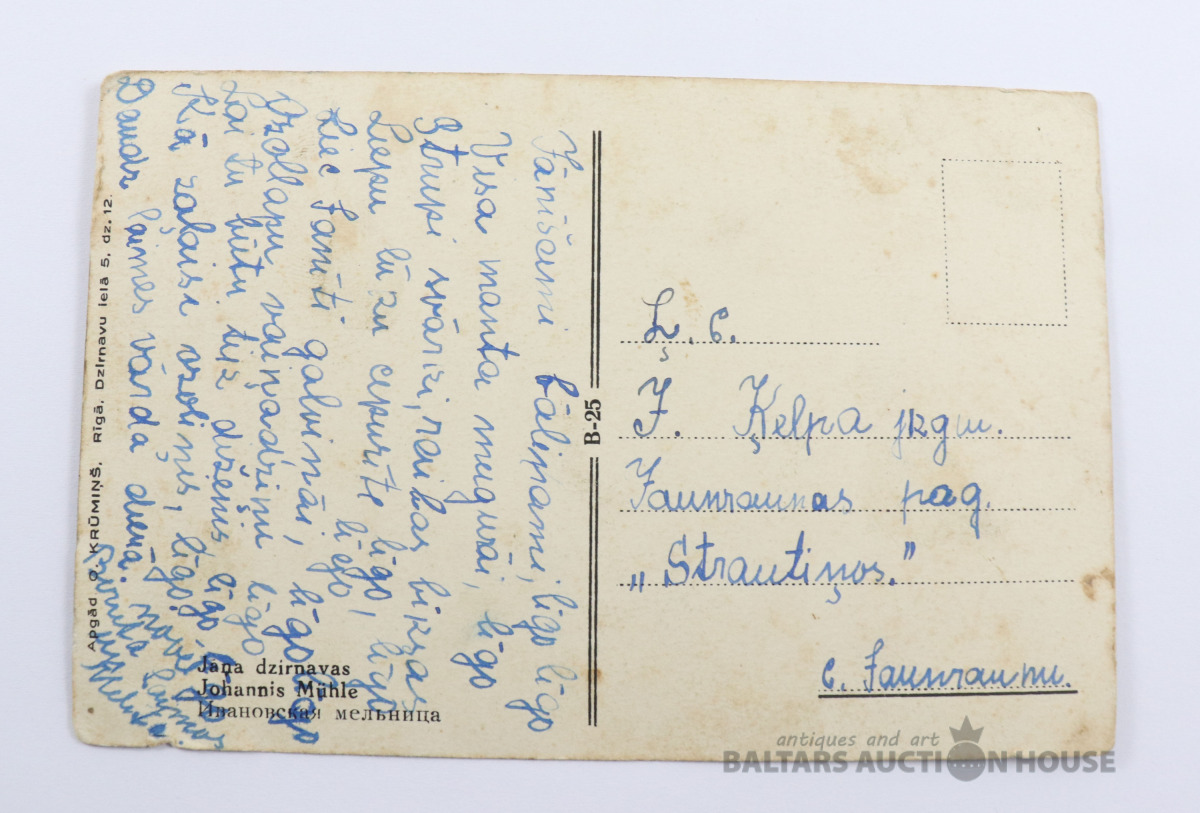 Jānīšami bāliņami, līgo līgo
Visa manta mugurāi, līgo
Strupi svārki, raibas bikzas
Liepu lūzu cepurīte līgo, līgo
Liec Janīti galviņāi, līgo
Ozollapu vaiņadziņu līgo līgo
Lai tu būtu tik dižens, līgo
Kā zaļaisi ozoliņis, līgo, līgo
Daudz laimes vārda dienā. novēl
Apgād O. KRŪMIŅŠ, Rīgā, Dzirnavu ielā 5, dz. 12.
Jaņa dzirnavas
Johannis Mühle
Ивановская мельница
B-25
Ļ. c.
J. Ķelpa jkgm.
Jaunraunas pag.
„Strautiņos."
c. Jaunraunu.
antiques and art
BALTARS AUCTION HOUSE